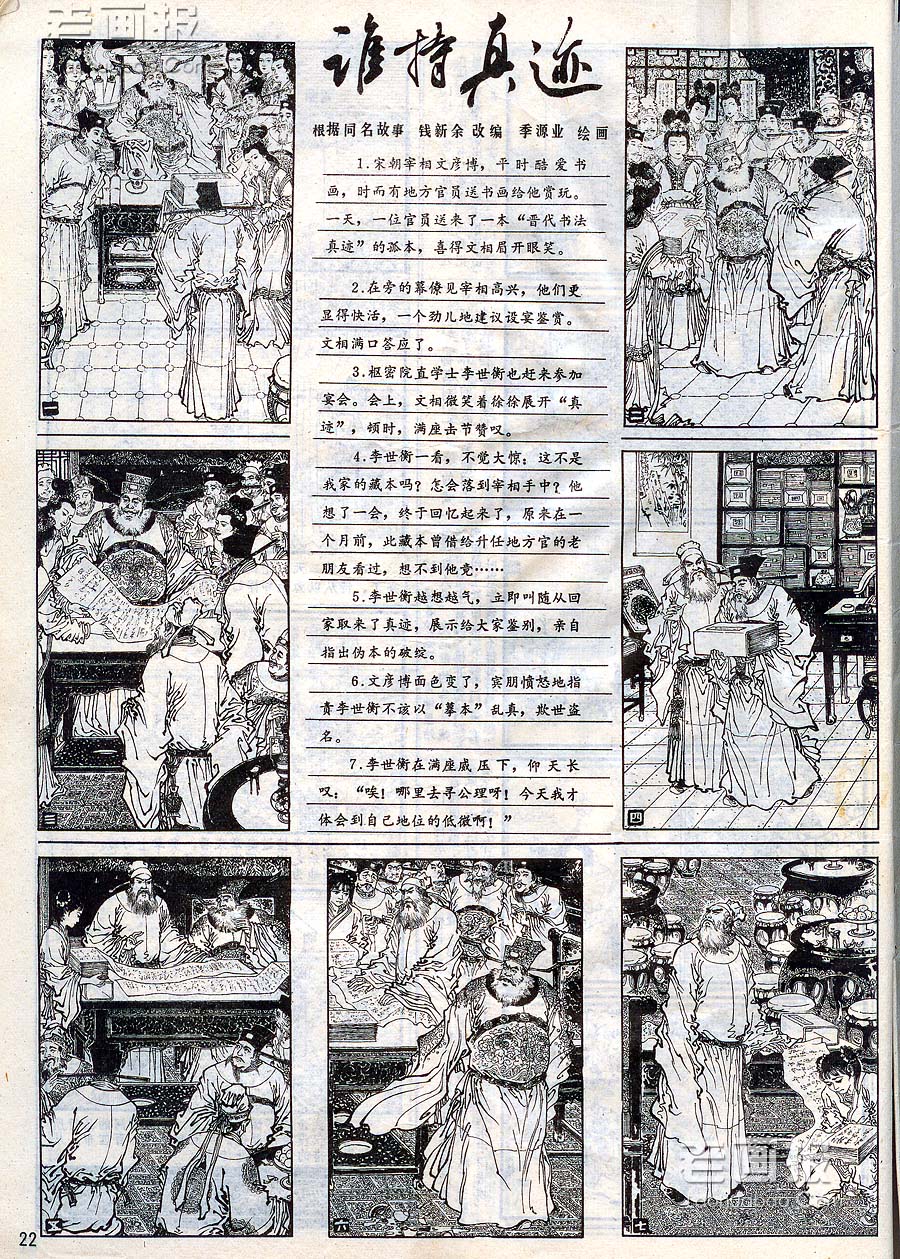 老画报
谁持真迹
根据同名故事 钱新余 改编 季源业 绘画
1.宋朝宰相文彦博，平时酷爱书
画，时而有地方官员送书画给他赏玩。
一天，一位官员送来了一本“晋代书法
真迹”的孤本，喜得文相眉开眼笑。
2.在旁的幕僚见宰相高兴，他们更
显得快活，一个劲儿地建议设宴鉴赏。
文相满口答应了。
3.枢密院直学士李世衡也赶来参加
宴会。会上，文相微笑着徐徐展开“真
迹”，顿时，满座击节赞叹。
4.李世衡一看，不觉大惊；这不是
我家的藏本吗？怎会落到宰相手中？他
想了一会，终于回忆起来了，原来在一
个月前，此藏本曾借给升任地方官的老
朋友看过，想不到他竟……
5.李世衡越想越气，立即叫随从回
家取来了真迹，展示给大家鉴别，亲自
指出伪本的破绽。
6.文彦博面色变了，宾朋愤怒地指
责李世衡不该以“摹本”乱真，欺世盗
名。
7.李世衡在满座威压下，仰天长
叹：“唉！哪里去寻公理呀！今天我才
体会到自己地位的低微啊！”
一
二
三
四
五
六
七
老画报
22